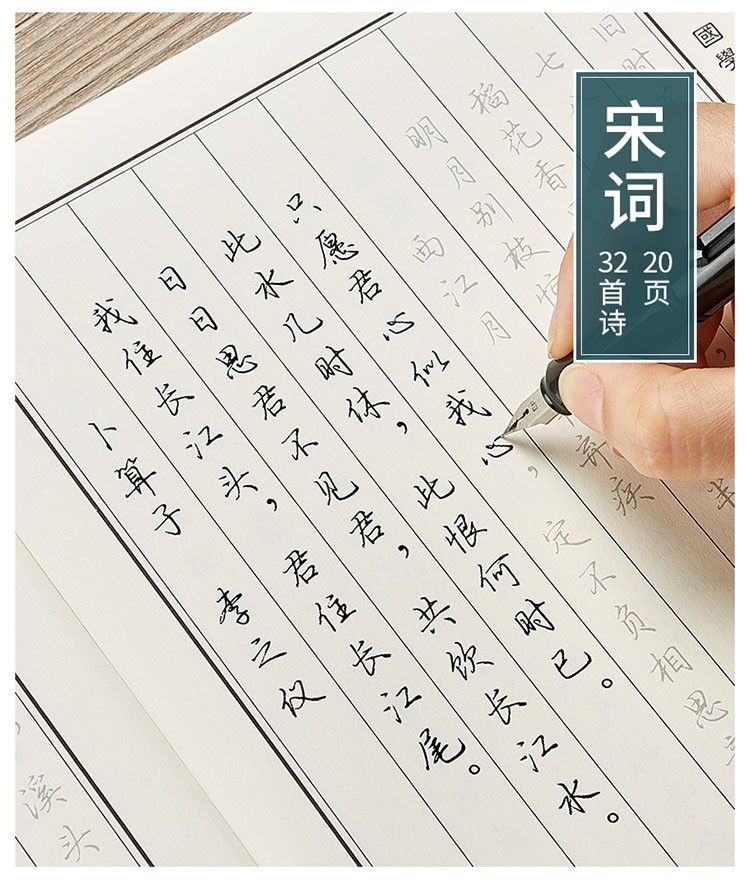 宋词
32首诗
20页
國學
卜算子 李之仪
我住长江头，君住长江尾。
日日思君不见君，共饮长江水。
此水几时休，此恨何时已。
只愿君心似我心，定不负相思
西江月 弃疾
明月别枝惊 半
稻花香
七
旧时
溪头